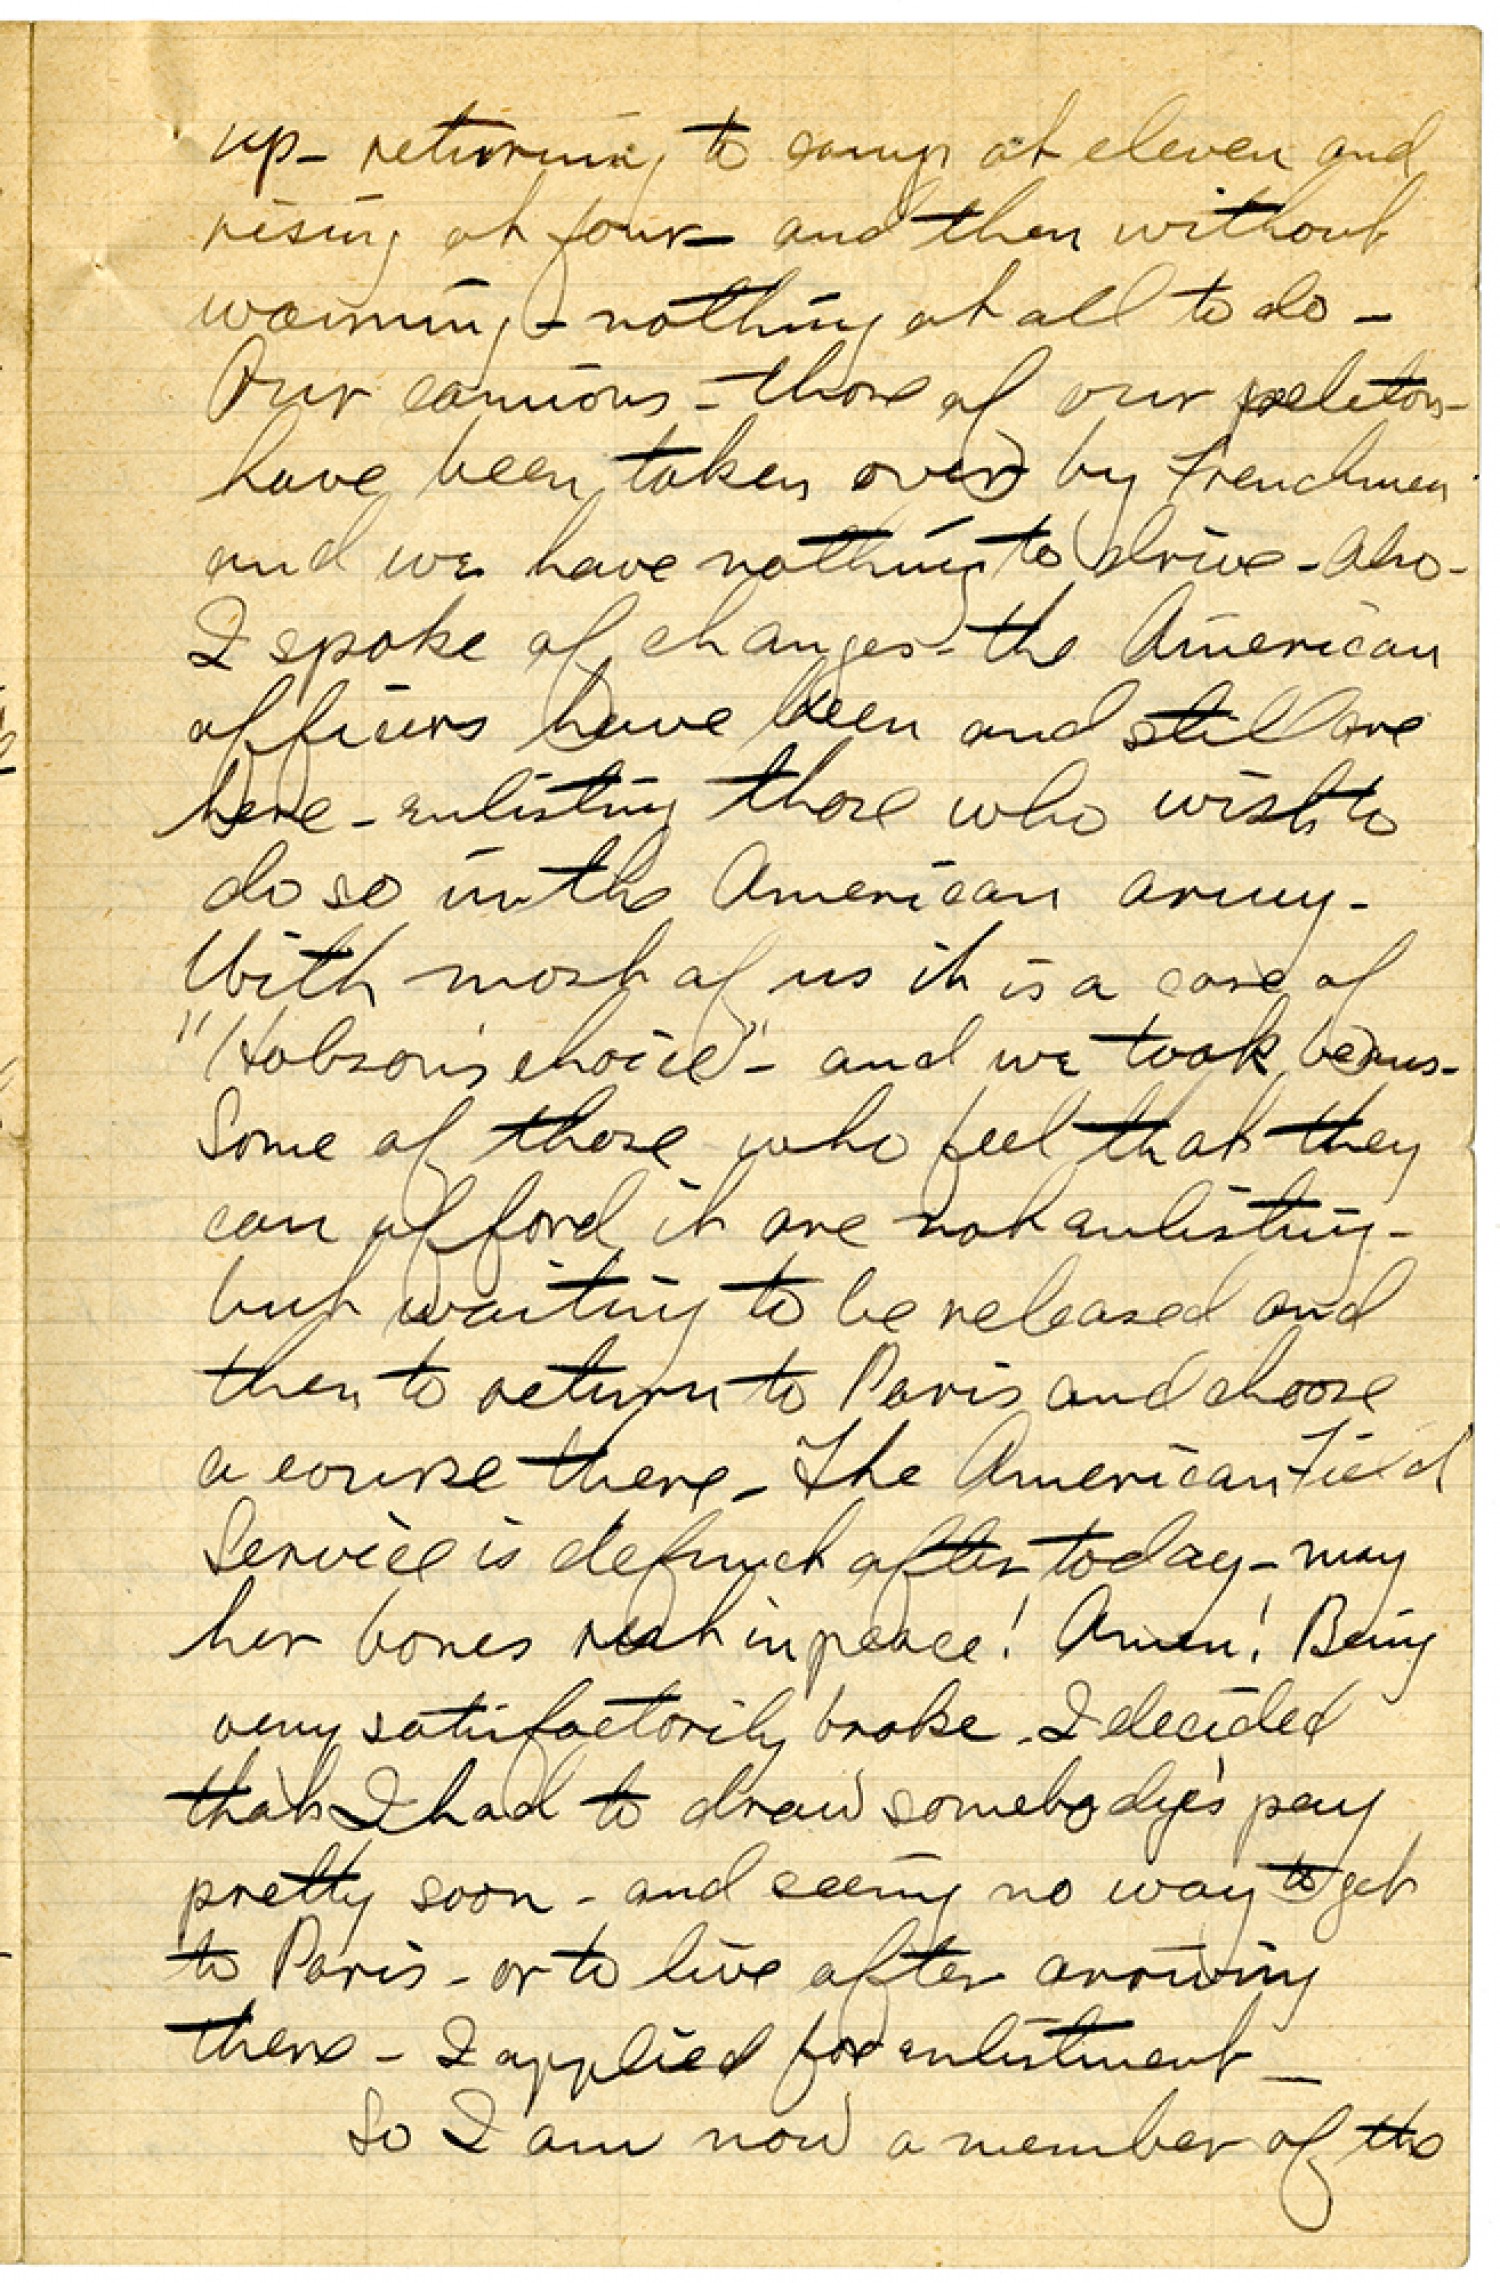 up - returning to camp at eleven and
rising at four - and then without
warning - nothing at all to do -
Our camions - those of our peleton -
have been taken over by Frenchmen
and we have nothing to drive - Also -
I spoke of changes - the American
officers have been and still are
here - enlisting those who wish to
do so in the American army -
With most of us it is a case of
"Hobson's choice" - and we took
Some of those who feel that they
can afford it are not enlisting -
but waiting to be released and
then to return to Paris and choose
a course there - The American Field
Service is defunct after today - may
her bones rest in peace! Amen! Being
very satisfactorily broke - I decided
that I had to draw somebody's pay
pretty soon - and seeing no way to get
to Paris - or to live after arriving
there - I applied for enlistment -
So I am now a member of the